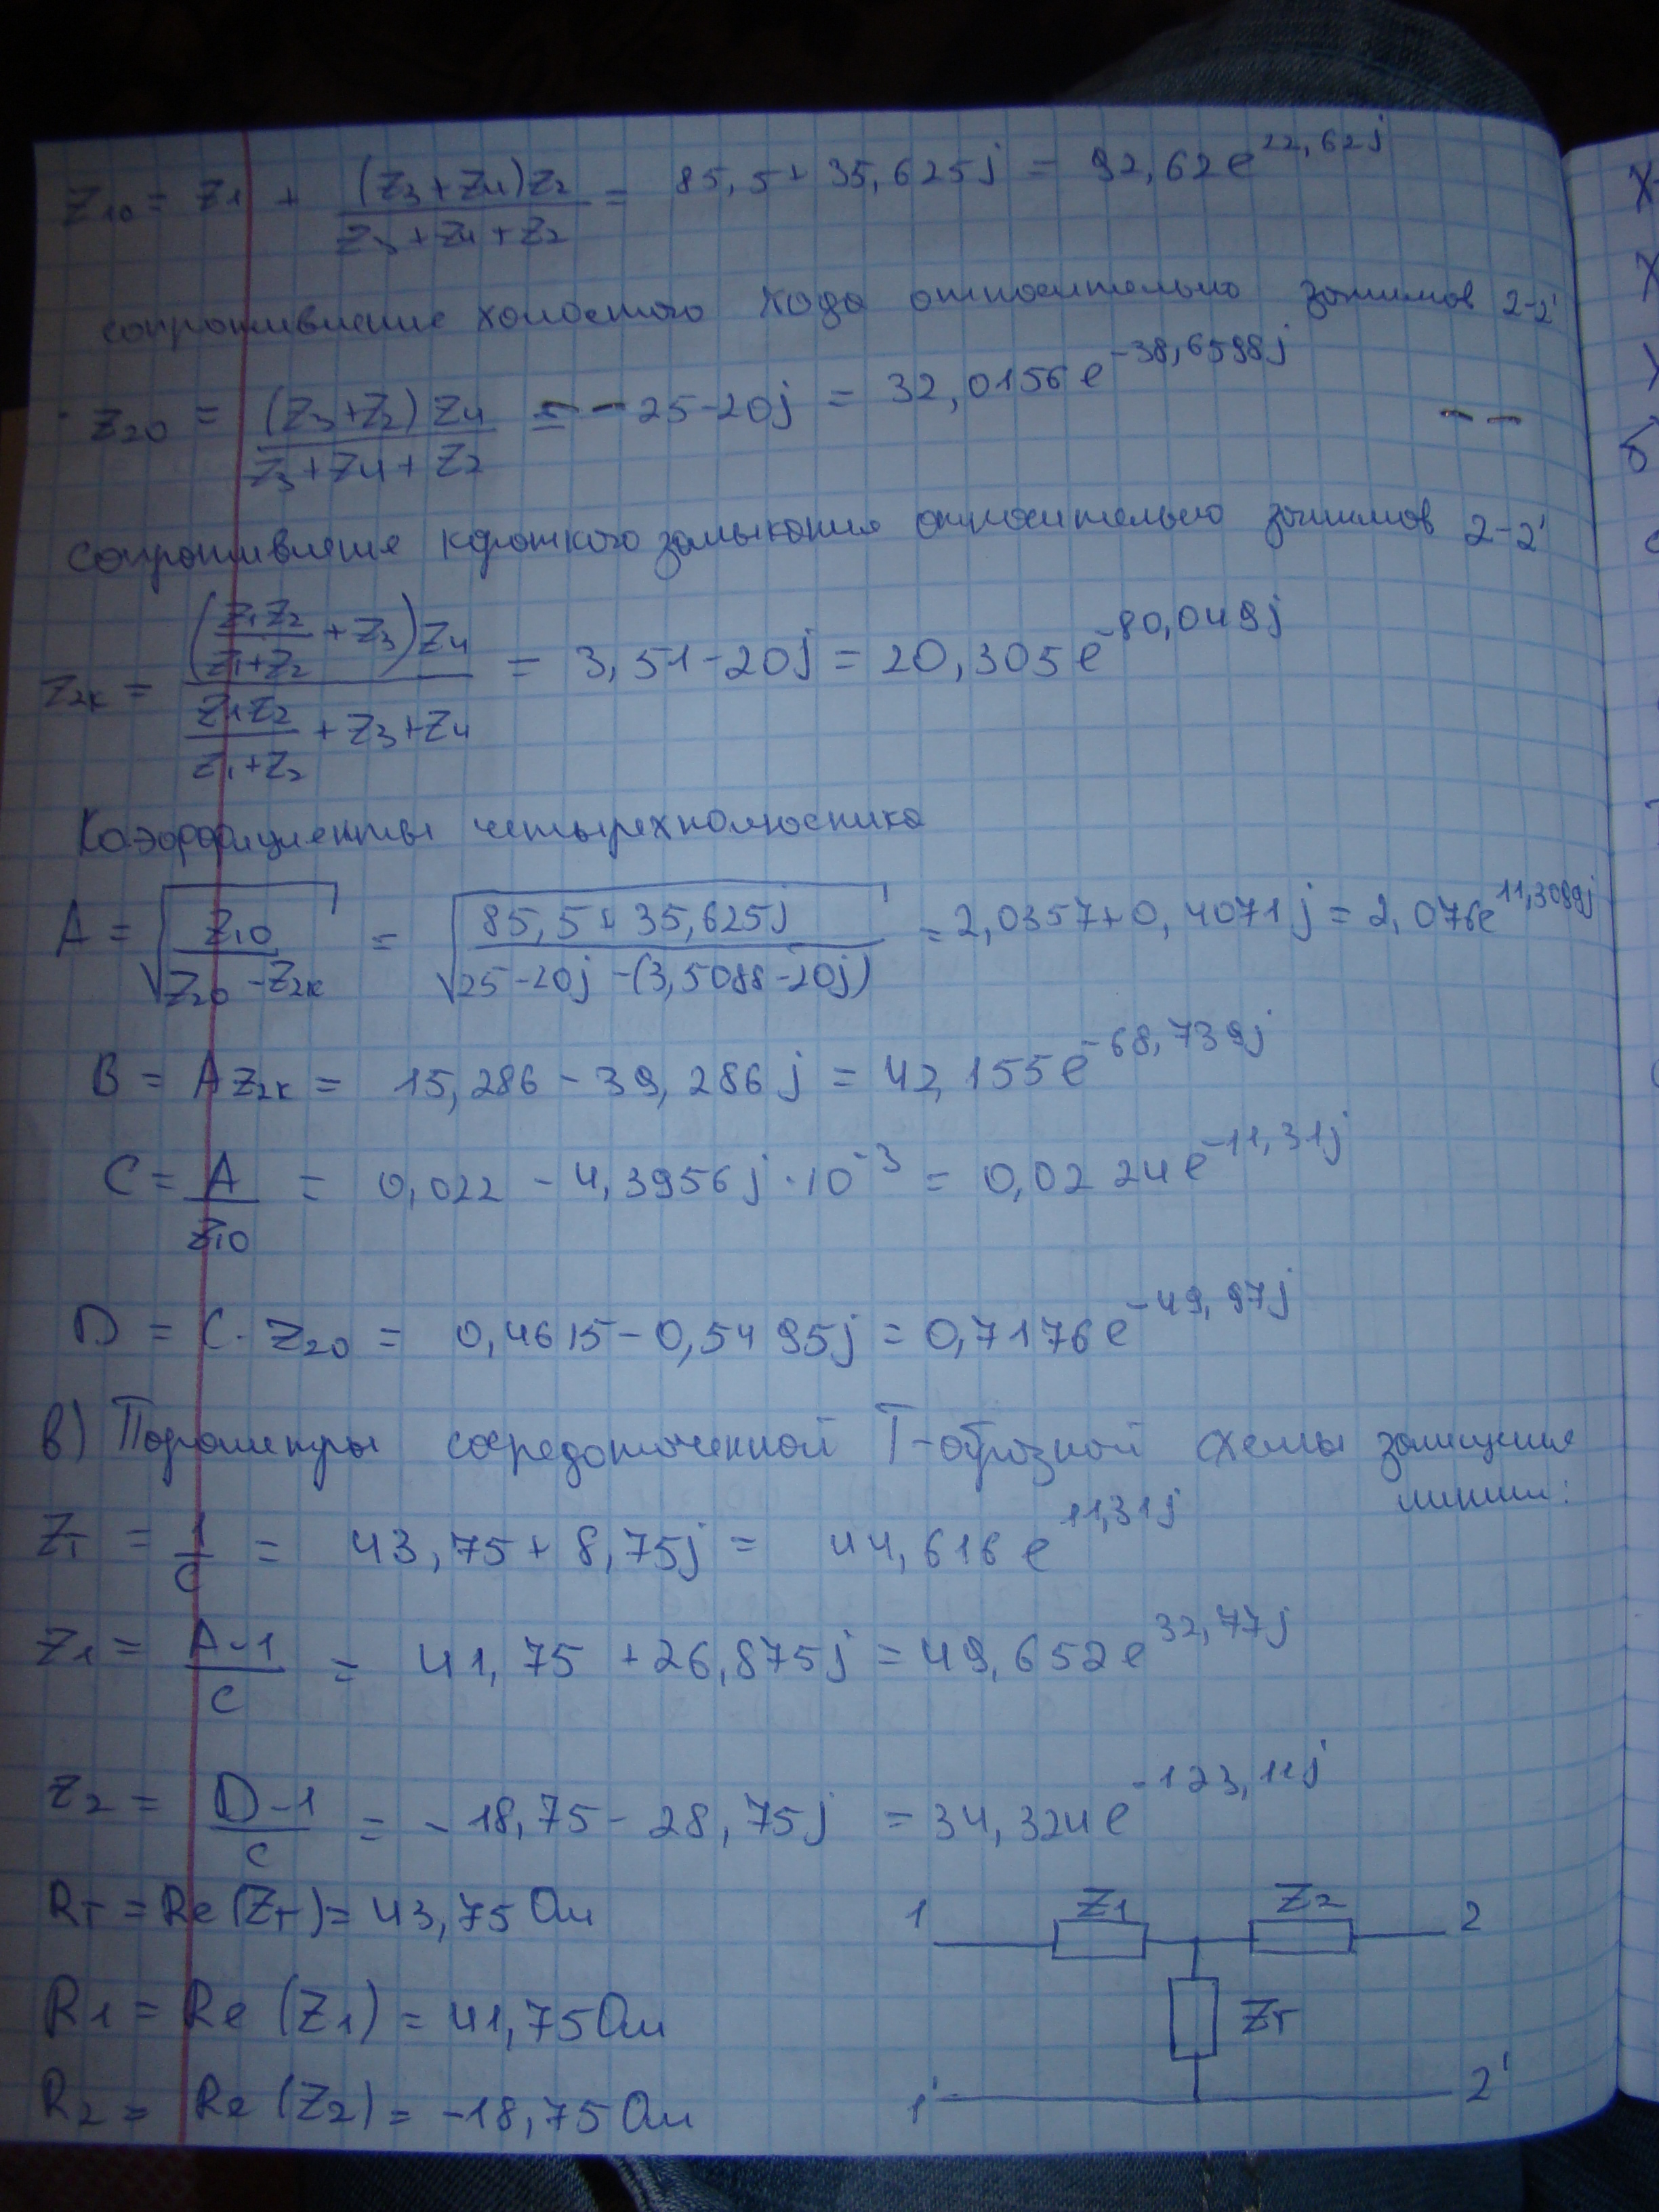 Z10 = Z1 + (Z3+Z4)Z2 / (Z3+Z4+Z2) = 85,5+35,625j = 92,62e^22,62j
сопротивление холостого хода относительно зажимов 2-2'
Z20 = (Z3+Z2)Z4 / (Z3+Z4+Z2) = 25-20j = 32,0156e^-38,6598j
Сопротивление короткого замыкания относительно зажимов 2-2'
Z2к = (Z1Z2/(Z1+Z2) + Z3)Z4 / (Z1Z2/(Z1+Z2) + Z3+Z4) = 3,51-20j = 20,305e^-80,049j
Коэффициенты четырехполюсника
A = √(Z10 / (Z20-Z2к)) = √((85,5+35,625j) / (25-20j-(3,5088-20j))) = 2,0357+0,4071j = 2,076e^11,3099j
B = AZ2к = 15,286-39,286j = 42,155e^-68,739j
C = A/Z10 = 0,022-4,3956j·10^-3 = 0,0224e^-11,31j
D = C·Z20 = 0,4615-0,5495j = 0,7176e^-49,97j
в) Параметры сосредоточенной Т-образной схемы замещения
линии:
ZT = 1/C = 43,75+8,75j = 44,616e^11,31j
Z1 = (A-1)/C = 41,75+26,875j = 49,652e^32,77j
Z2 = (D-1)/C = -18,75-28,75j = 34,324e^-123,11j
RT = Re(ZT) = 43,75 Ом
R1 = Re(Z1) = 41,75 Ом
R2 = Re(Z2) = -18,75 Ом
1 Z1 Z2 2
ZT
1' 2'